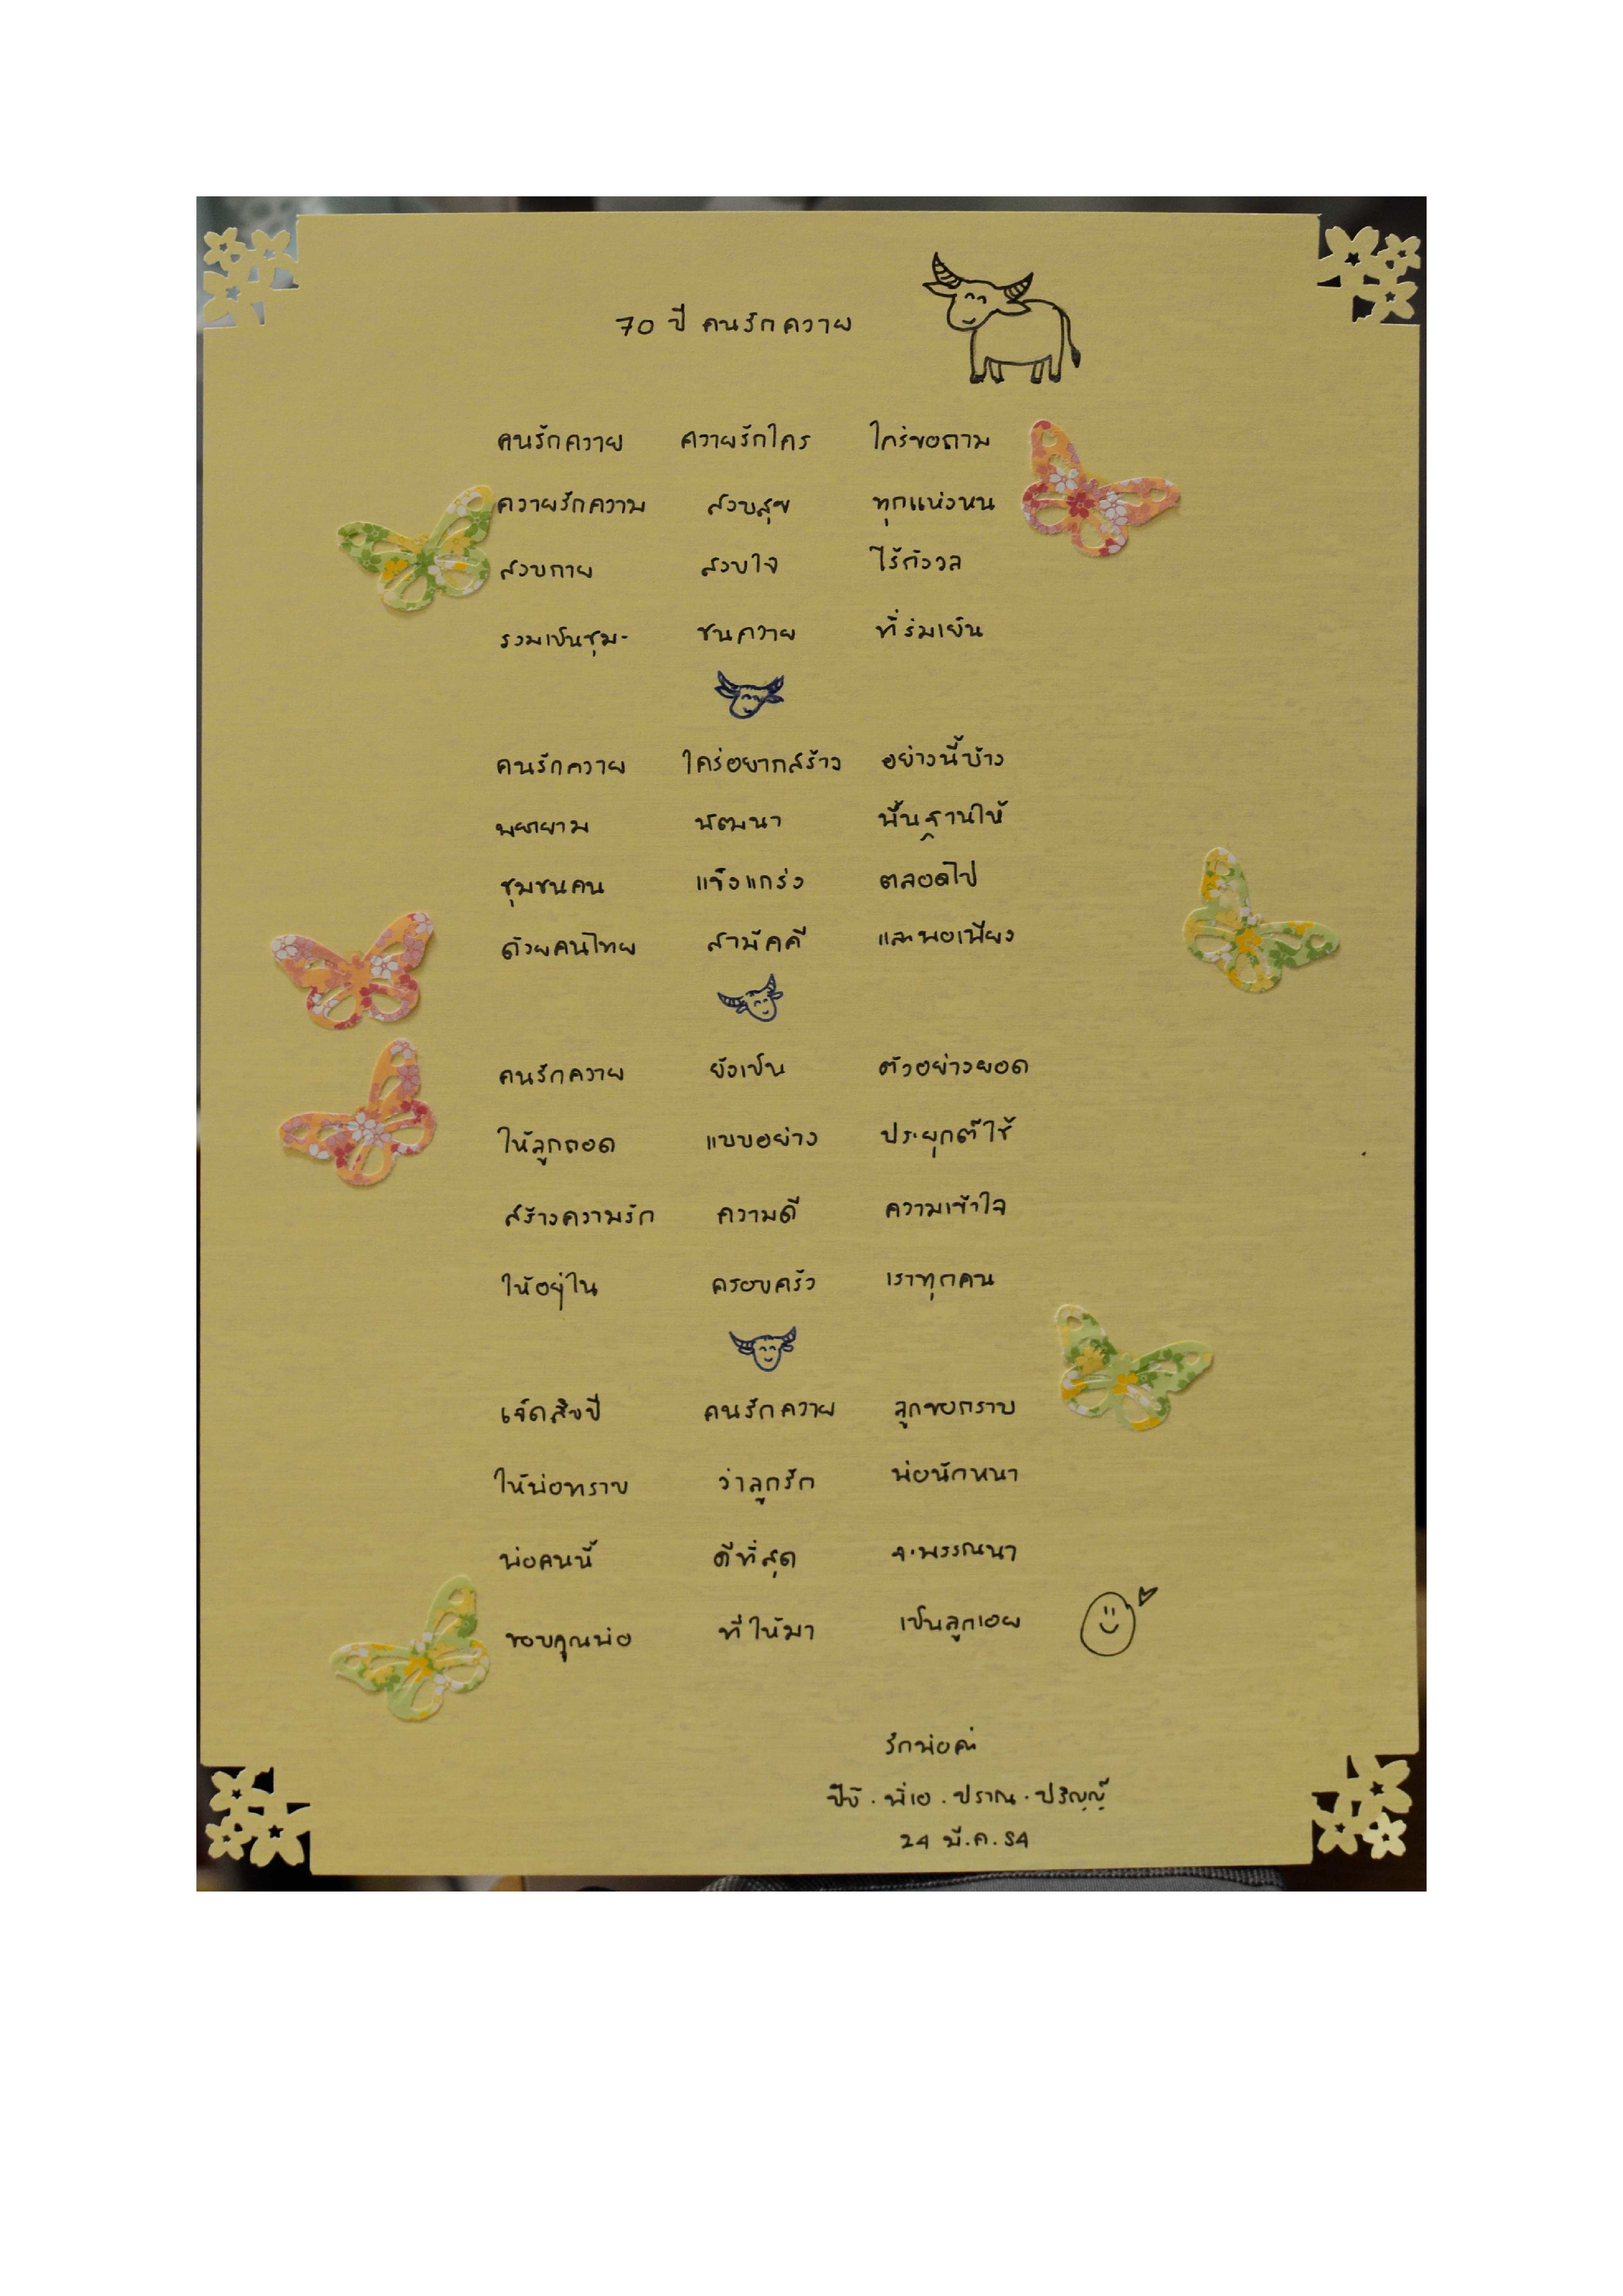 70 ปี คนรักควาย
คนรักควาย ควายรักใคร ใคร่ขอถาม
ควายรักความ สงบสุข ทุกแห่งหน
สงบกาย สงบใจ ไร้กังวล
รวมเป็นชุม- ชนควาย ที่ร่มเย็น
คนรักควาย ใคร่อยากสร้าง อย่างนี้บ้าง
พยายาม พัฒนา พื้นฐานให้
ชุมชนคน แข็งแกร่ง ตลอดไป
ด้วยคนไทย สามัคคี และพอเพียง
คนรักควาย ยังเป็น ตัวอย่างยอด
ให้ลูกถอด แบบอย่าง ประยุกต์ใช้
สร้างความรัก ความดี ความเข้าใจ
ให้อยู่ใน ครอบครัว เราทุกคน
เจ็ดสิบปี คนรักควาย ลูกขอกราบ
ให้พ่อทราบ ว่าลูกรัก พ่อนักหนา
พ่อคนนี้ ดีที่สุด จะพรรณนา
ขอบคุณพ่อ ที่ให้มา เป็นลูกเอย
รักพ่อค่ะ
ปีบี . พี่เอ . ปราณ . ปริญญ์
24 มี.ค. 54